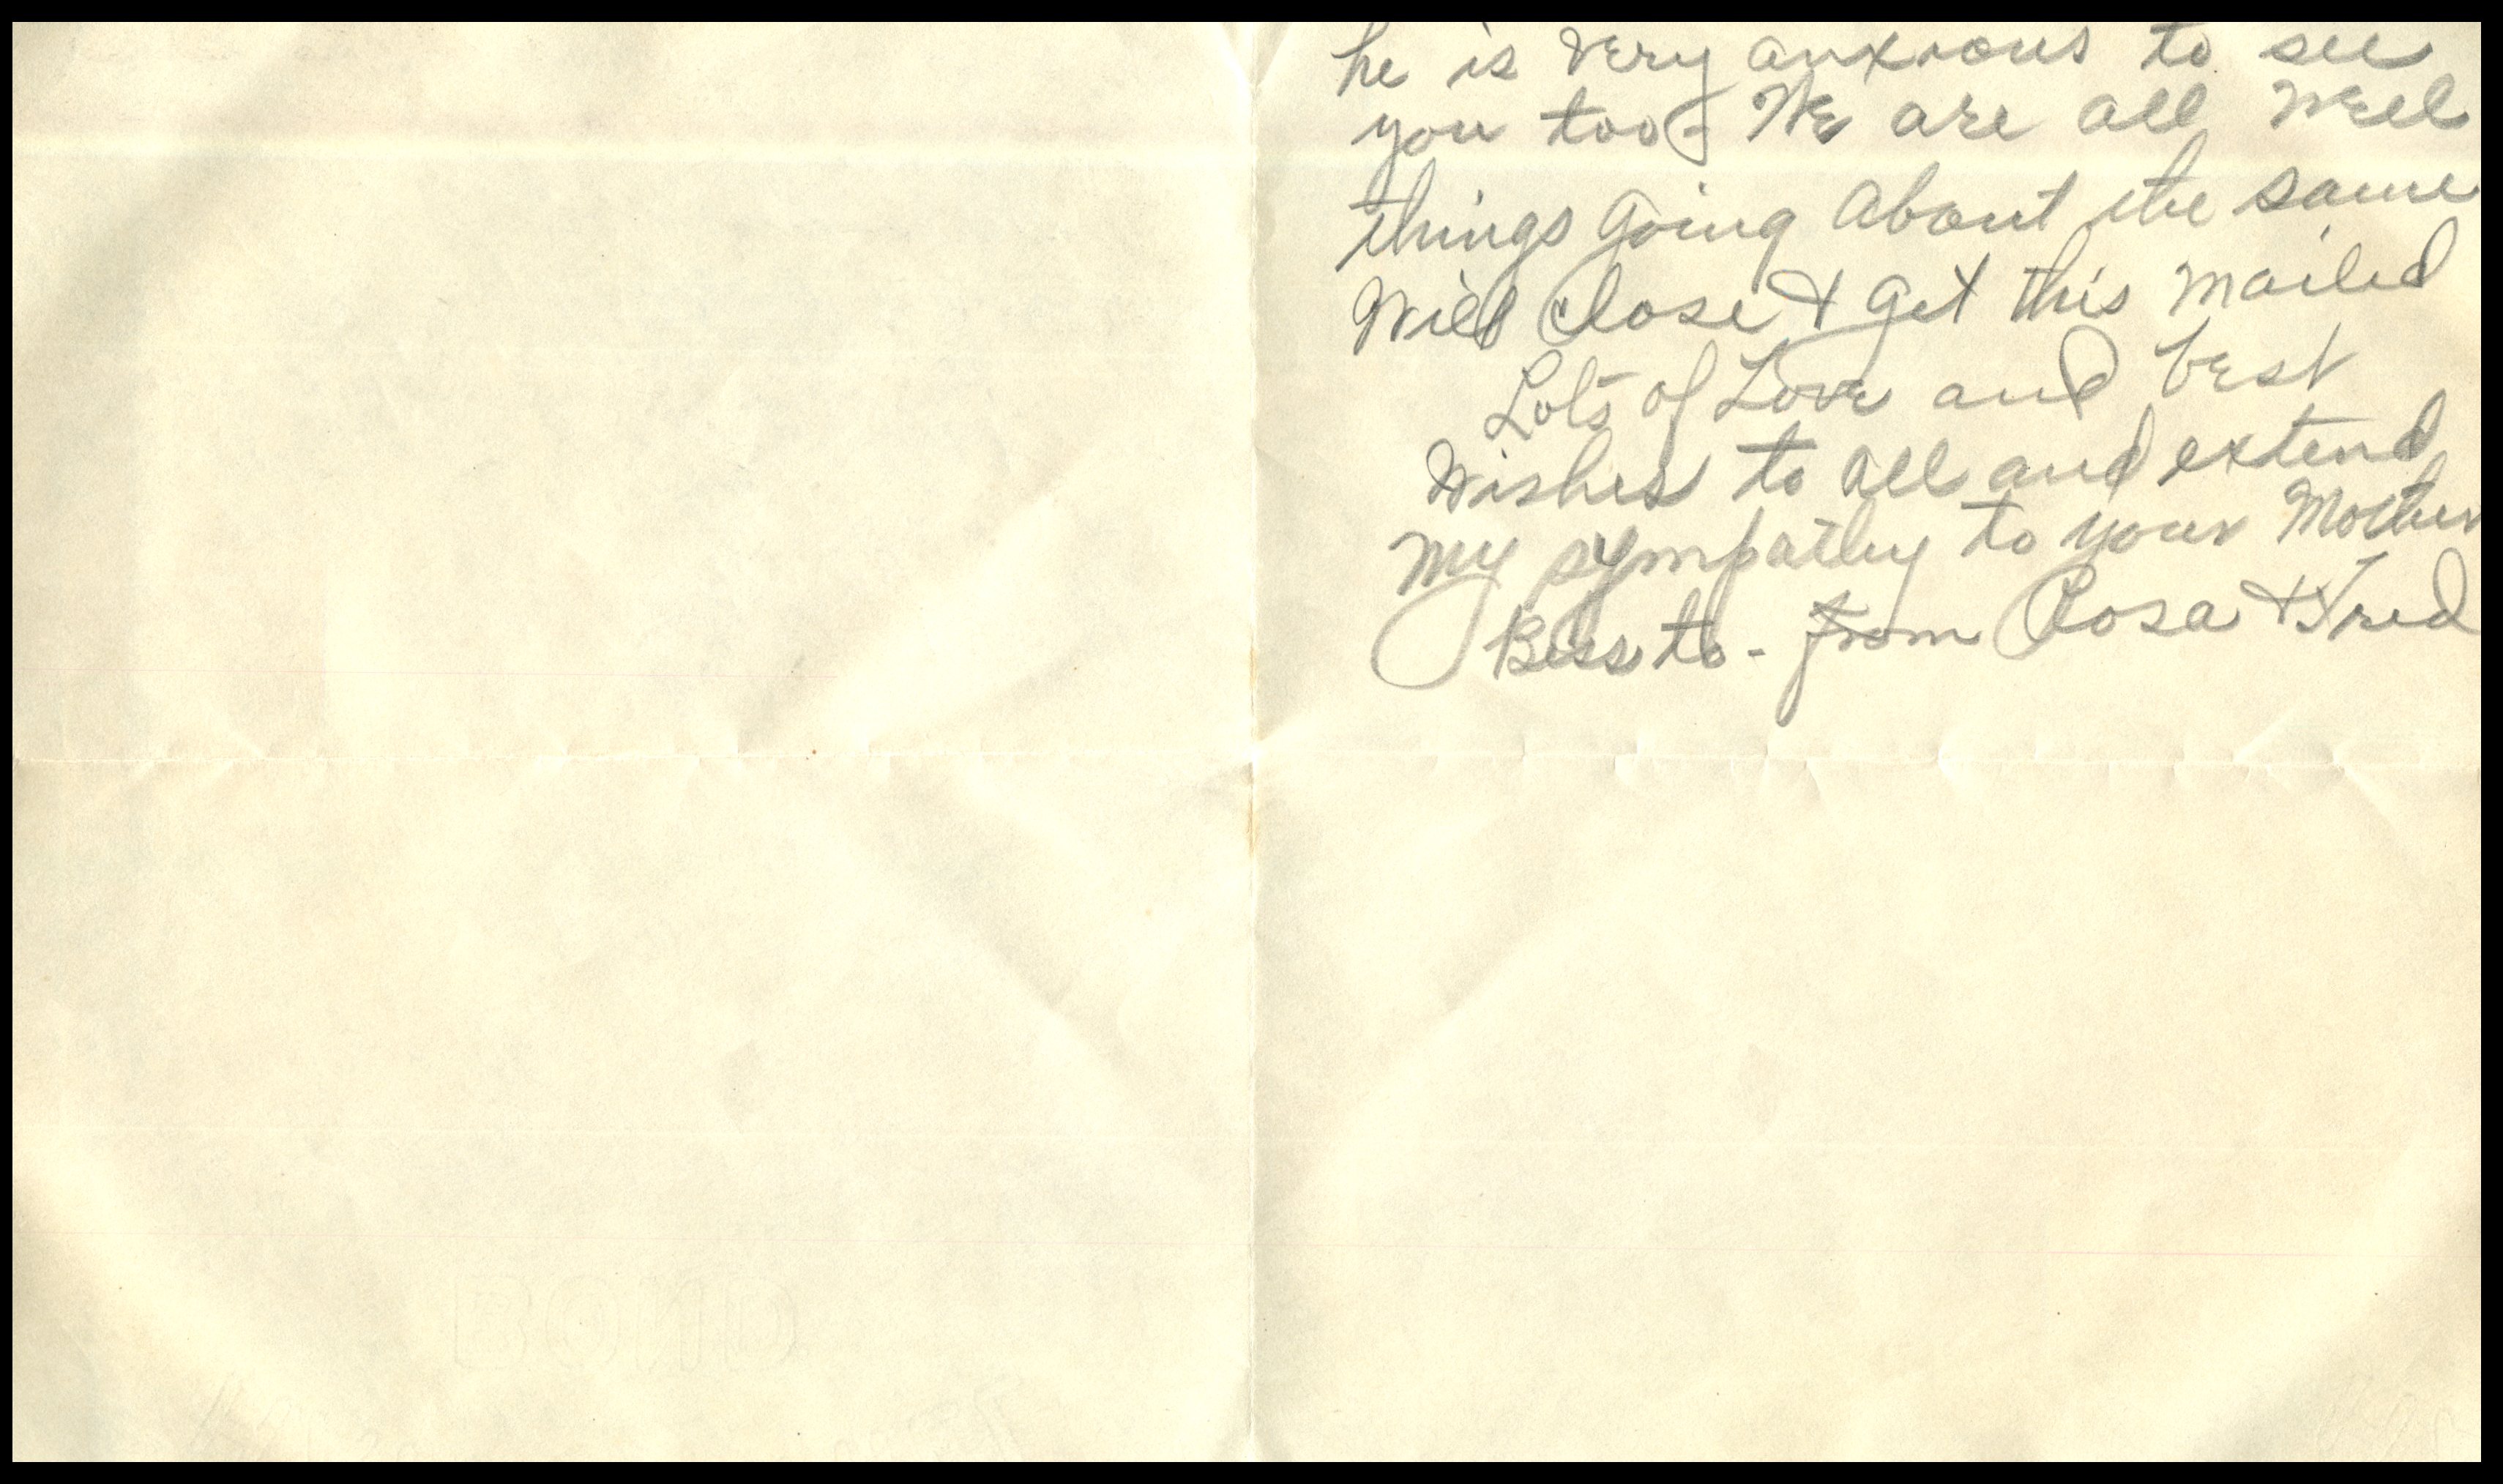 he is very anxious to see
you too - We are all well
things going about the same
Will close & get this mailed
Lots of Love and best
Wishes to all and extend
my sympathy to your Mother
Bess to - from Rosa & Fred
BOND